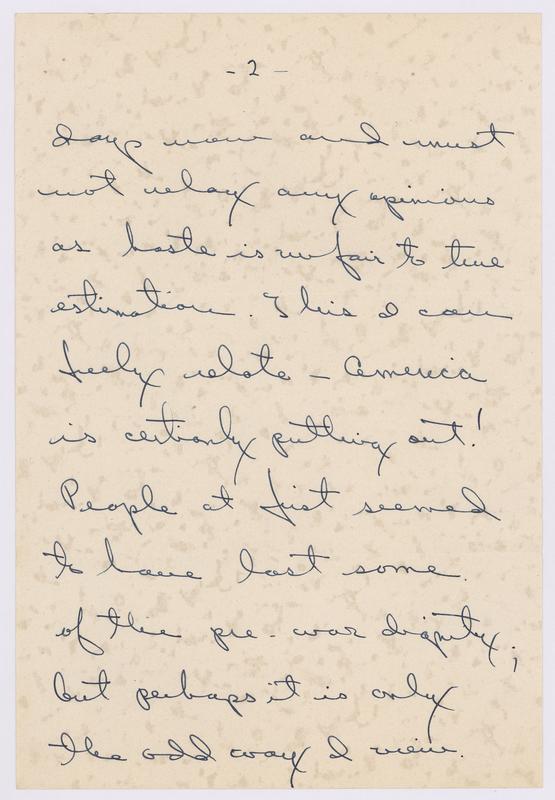 - 2 -
days now and must
not relay any opinions
as haste is unfair to true
estimation. This I can
freely relate - America
is certianly putting out!
People at first seemed
to have lost some
of the pre-war dignity;
but perhaps it is only
the odd way I view.